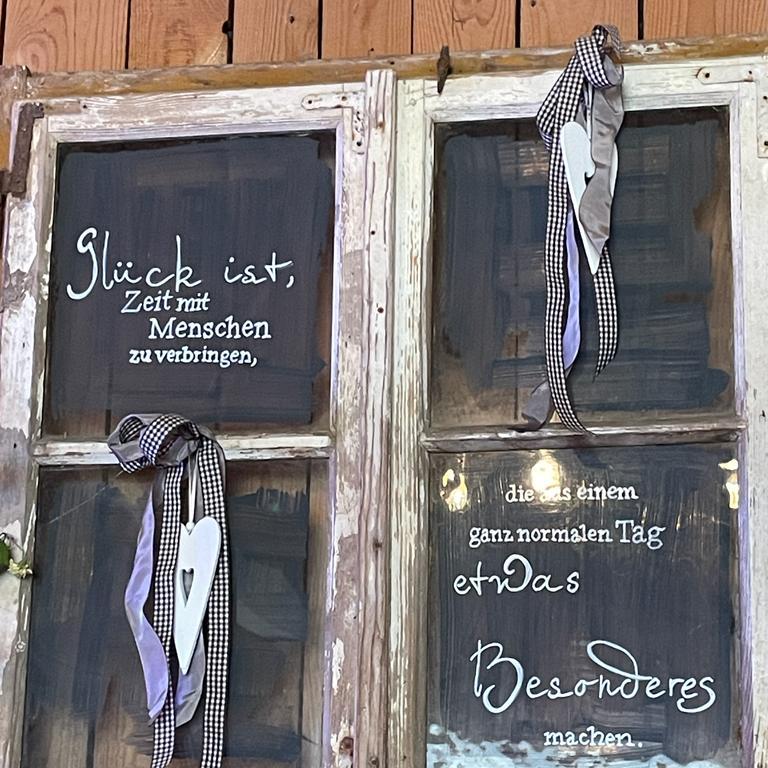 Glück ist,
Zeit mit
Menschen
zu verbringen,
die aus einem
ganz normalen Tag
etwas
Besonderes
machen.